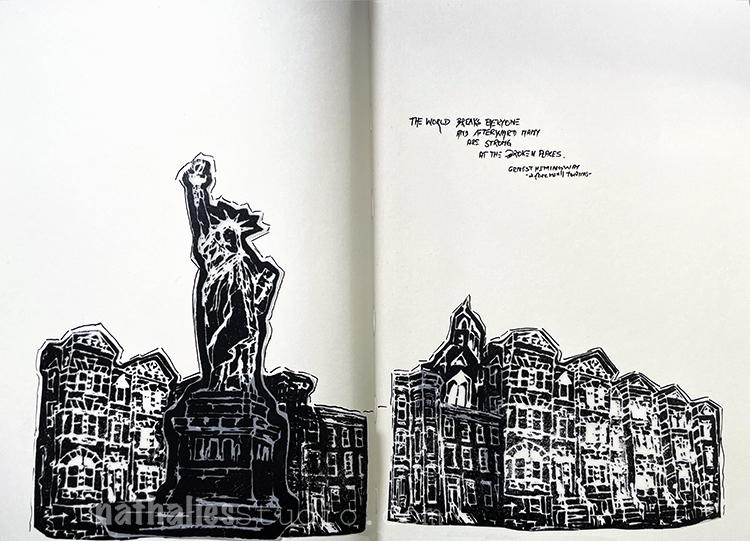 THE WORLD BREAKS EVERYONE
AND AFTERWARD MANY
ARE STRONG
AT THE BROKEN PLACES.
ERNEST HEMINGWAY
nathalies studio